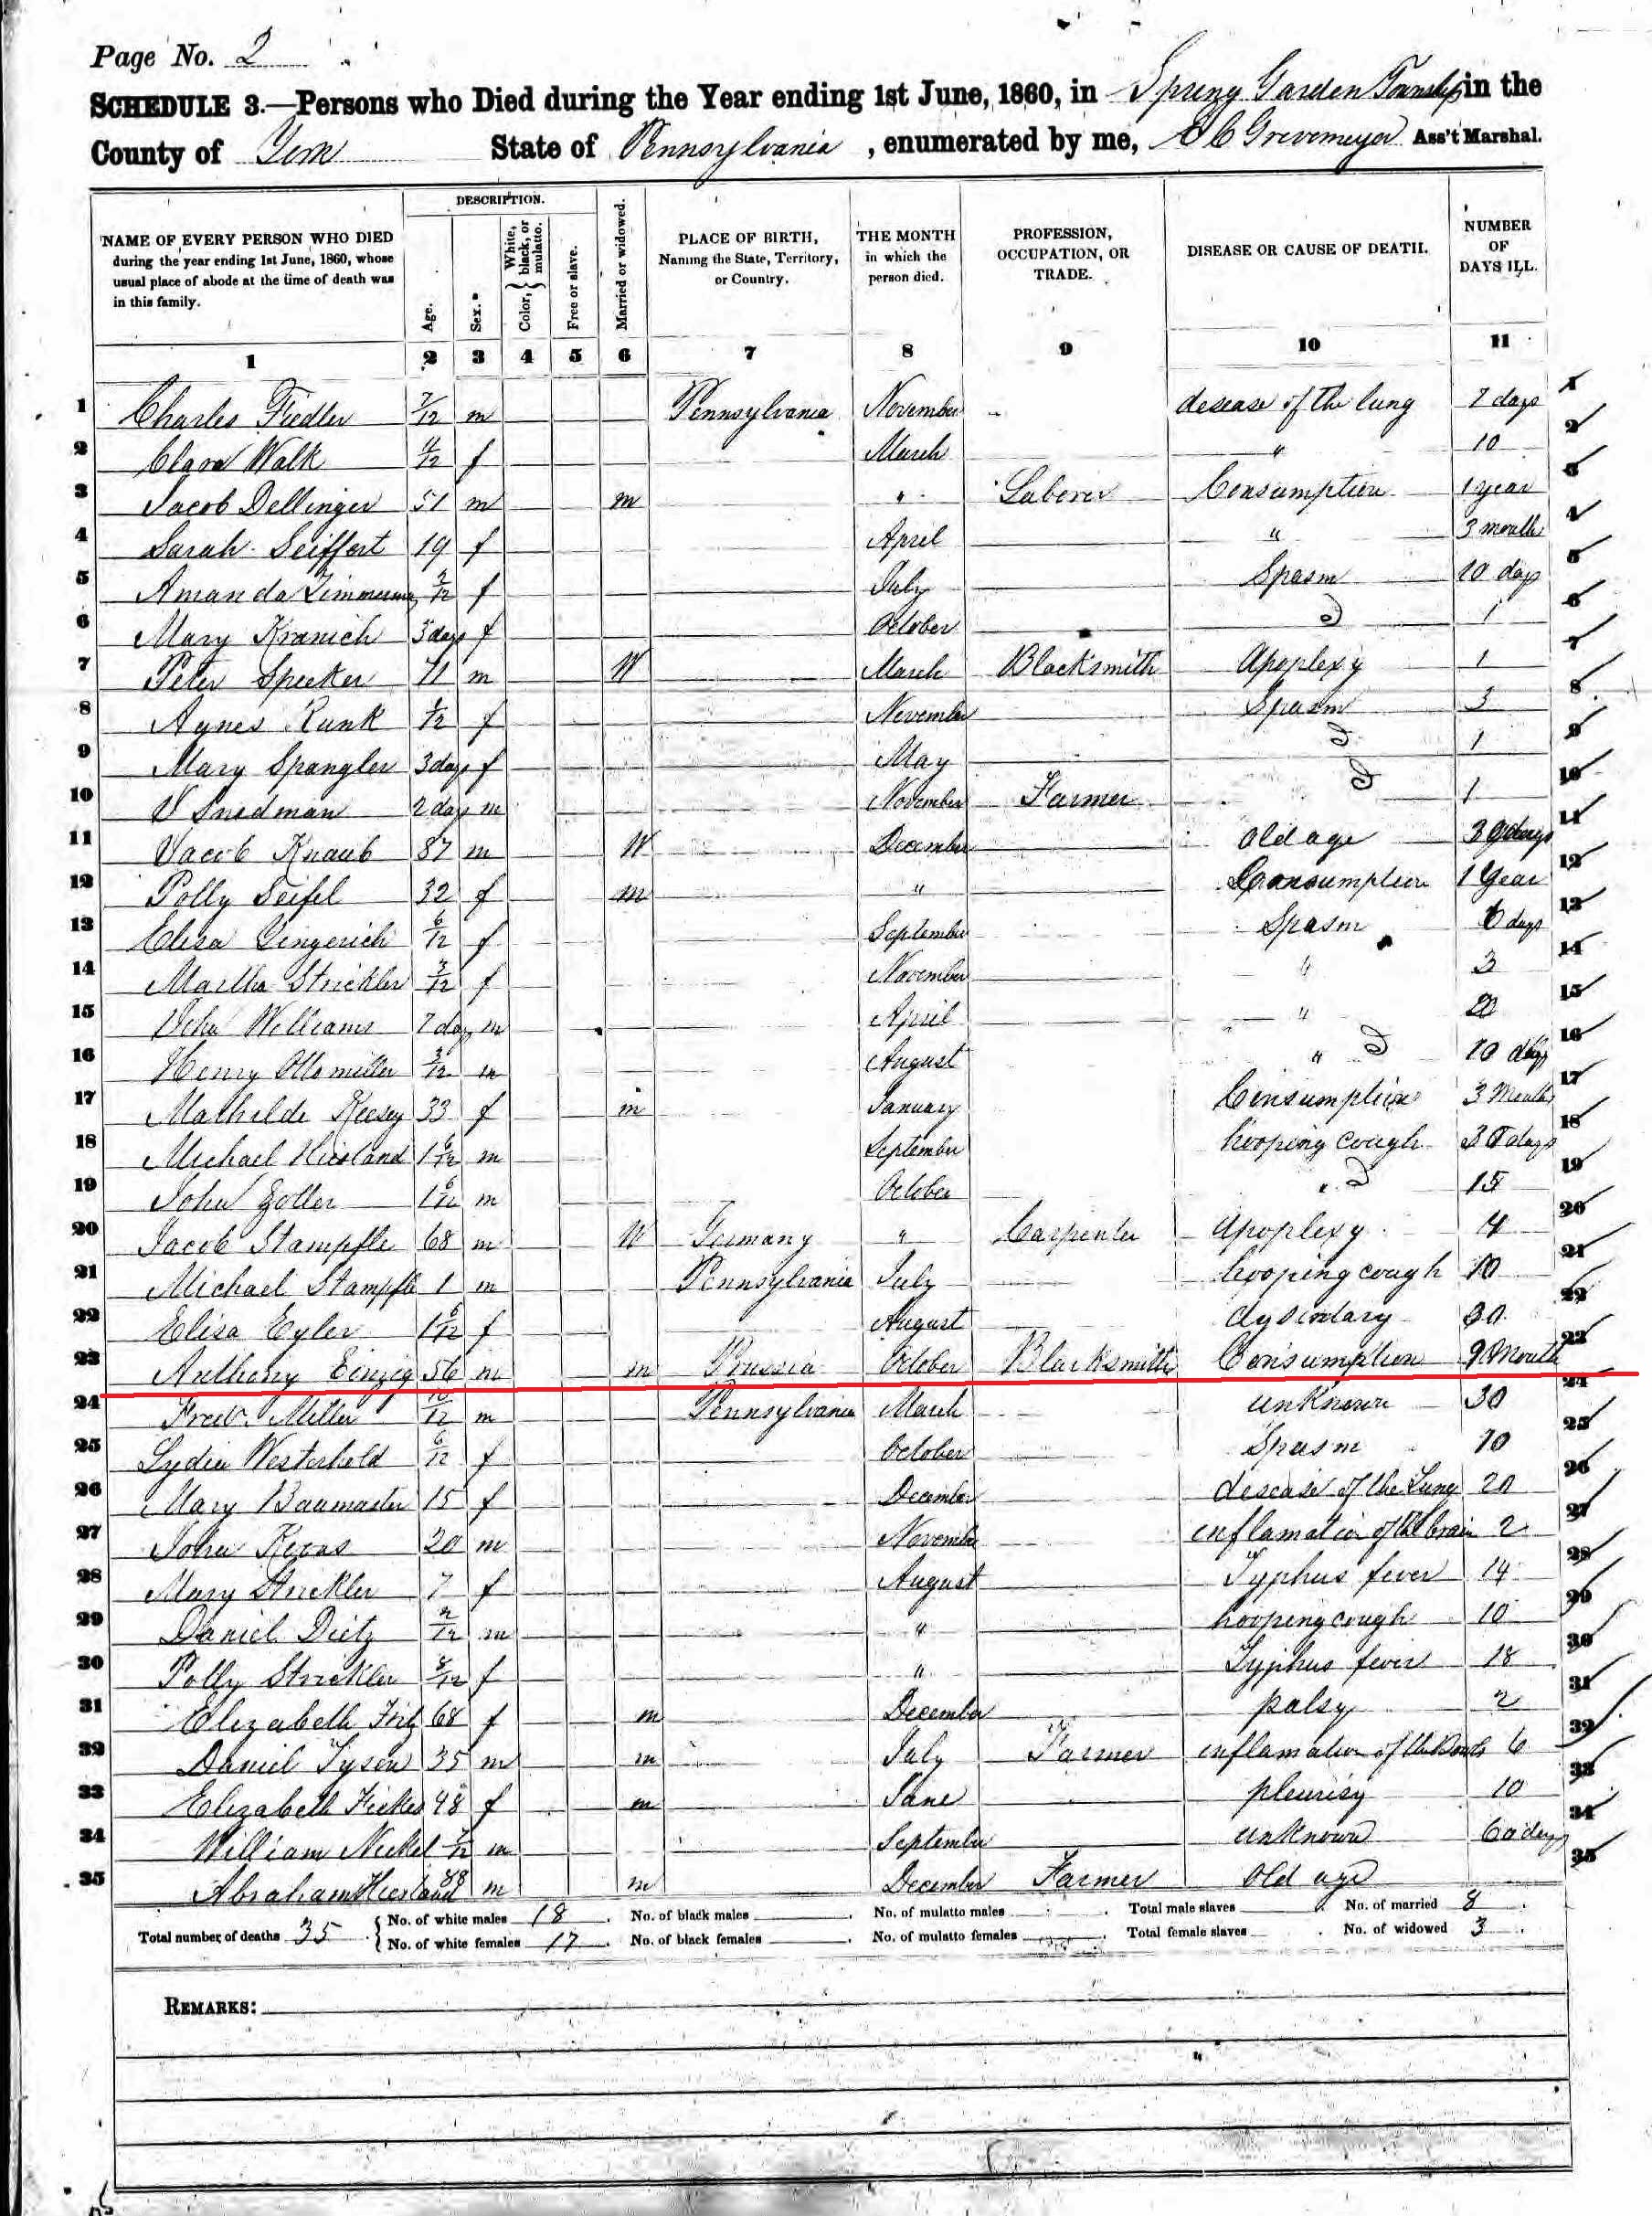 Page No. 2
SCHEDULE 3.—Persons who Died during the Year ending 1st June, 1860, in Spring Garden Township in the
County of York State of Pennsylvania, enumerated by me, Grevemeyer Ass't Marshal.
NAME OF EVERY PERSON WHO DIED during the year ending 1st June, 1860, whose usual place of abode at the time of death was in this family.
DESCRIPTION.
Age.
Sex.
Color, { White, black, or mulatto.
Free or slave.
Married or widowed.
PLACE OF BIRTH, Naming the State, Territory, or Country.
THE MONTH in which the person died.
PROFESSION, OCCUPATION, OR TRADE.
DISEASE OR CAUSE OF DEATH.
NUMBER OF DAYS ILL.
1 2 3 4 5 6 7 8 9 10 11
1 Charles Fiedler 7/12 m Pennsylvania November desease of the lung 7 days 1
2 Clara Walk 4/12 f March " 10 2
3 Jacob Dellinger 51 m m " Laborer Consumption 1 year 3
4 Sarah Seiffert 19 f April " 3 months 4
5 Amanda Zimmerman f July Spasm 10 days 5
6 Mary Kranich 3 days f October 1 6
7 Peter Specker 71 m W March Blacksmith Apoplexy 1 7
8 Agnes Runk 1/12 f November Spasm 3 8
9 Mary Spangler 3 days f May 1 9
10 2 days m November Farmer 1 10
11 Jacob Knaub 87 m W December old age 11
12 Polly Seifel 32 f m " Consumption 1 Year 12
13 Elisa Gingerich 6/12 f September Spasm 6 days 13
14 Martha Strickler 3/12 f November " 3 14
15 John Williams 7 days m April " 15
16 Henry Ottomiller 3/12 m August " 10 days 16
17 Mathilde Keesey 33 f m January Consumption 3 Months 17
18 Michael Hiestand 1 6/12 m September hooping cough 18
19 John Zoller 1 6/12 m October 15 19
20 Jacob Stampfle 68 m W Germany " Carpenter Apoplexy 4 20
21 Michael Stampfle 1 m Pennsylvania July hooping cough 10 21
22 Elisa Eyler 1 6/12 f August dysentary 30 22
23 Anthony Einzig 56 m m Prussia October Blacksmith Consumption 9 Month 23
24 Fred. Miller 10/12 m Pennsylvania March unknown 30 24
25 Lydia Westerhold 6/12 f October Spasm 10 25
26 Mary Baumaster 15 f December desease of the Lung 20 26
27 John 20 m November inflamation of the brain 2 27
28 Mary Strickler 7 f August Typhus fever 14 28
29 Daniel Dietz m " hooping cough 10 29
30 Polly Strickler 8/12 f " Typhus fever 18 30
31 Elizabeth 68 f m December palsy 2 31
32 Daniel Tyson 35 m m July Farmer inflamation of the Bowels 6 32
33 Elizabeth Fickes 48 f m June pleurisy 10 33
34 William Nickel 7/12 m September unknown 60 days 34
35 Abraham Hiestand 88 m m December Farmer old age 35
Total number of deaths 35 { No. of white males 18. No. of black males . No. of mulatto males . Total male slaves . No. of married 8.
No. of white females 17. No. of black females . No. of mulatto females . Total female slaves . No. of widowed 3.
REMARKS: